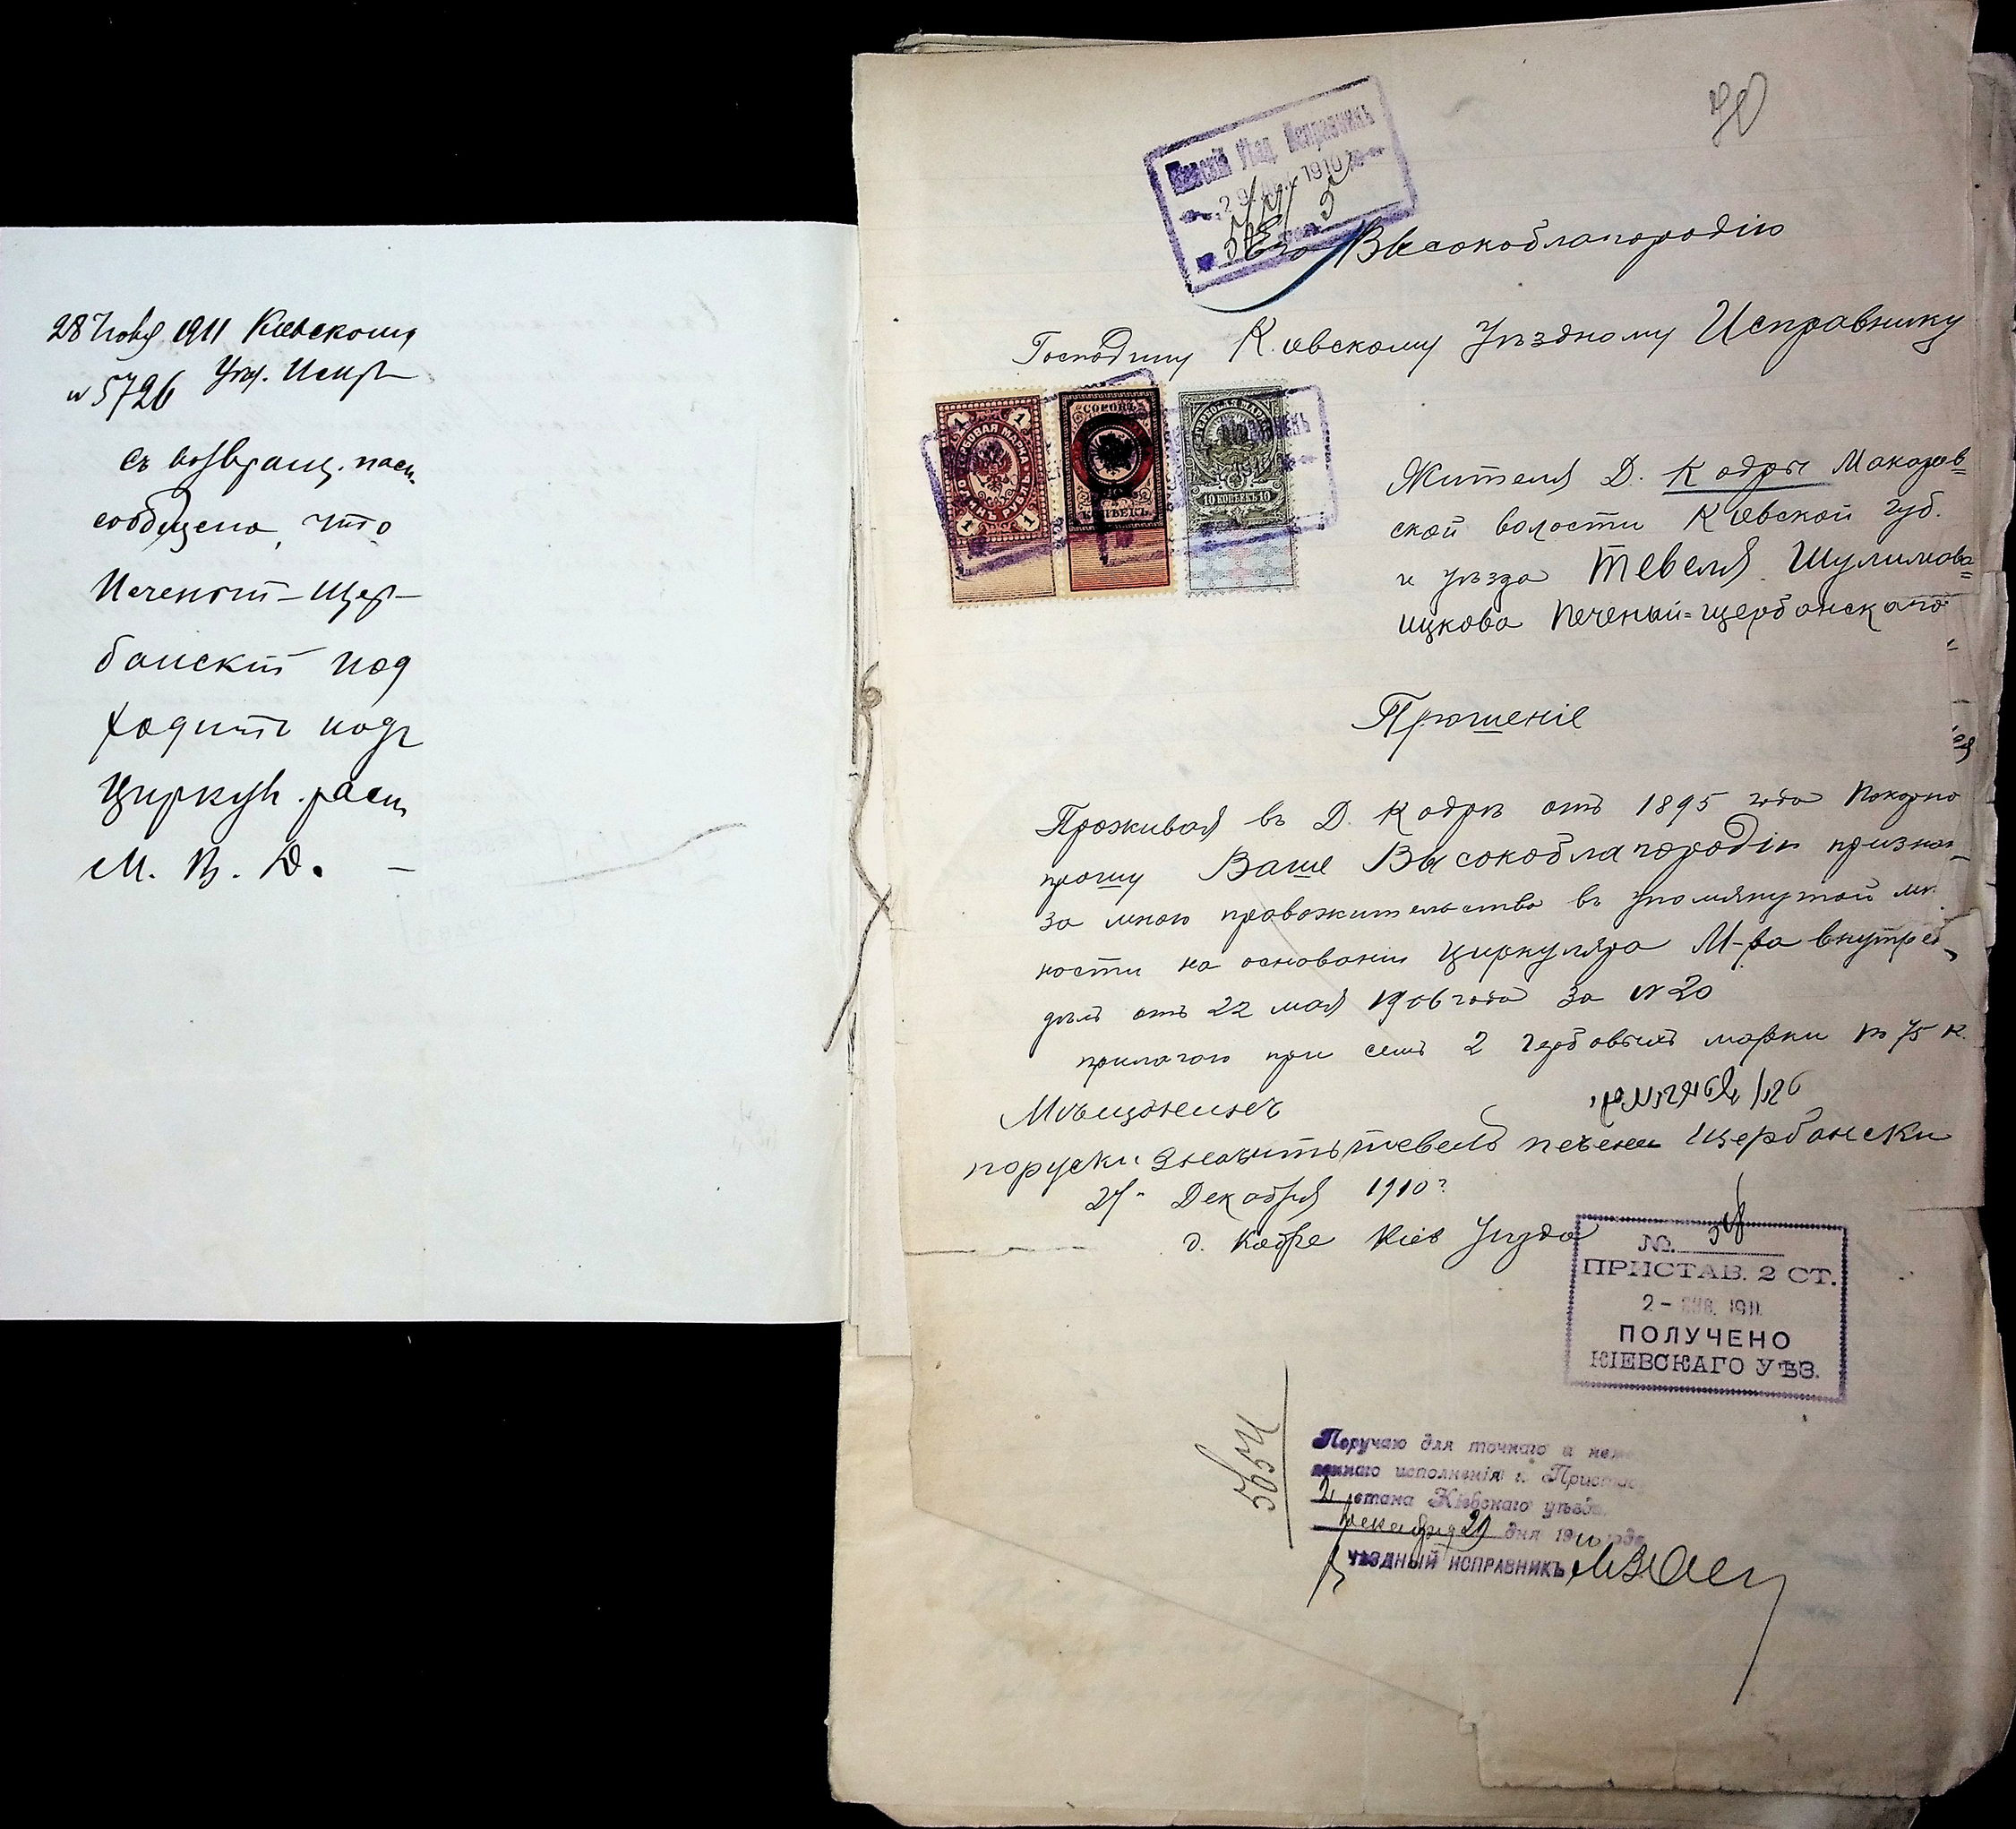 28 Іюня 1911 Кіевскому
№ 5726 Уѣз. Испр.
съ возвращ. пасп.
сообщено, что
Печеной-Щер-
банскій под
ходитъ подъ
Циркул. расп.
М. В. Д.
70
Кіевскій Уѣзд. Исправникъ
29 1910
Его Высокоблагородію
Господину Кіевскому Уѣздному Исправнику
ГЕРБОВАЯ МАРКА
ОДИНЪ РУБЛЬ
1 1 1 1
СОРОКЪ
КОПѢЕКЪ
ГЕРБОВАЯ МАРКА
10 КОПѢЕКЪ 10
Жителя Д. Кодры Макаров=
ской волости Кіевской губ.
и уѣзда Тевеля Шулимова=
ицкова Печеный=щербанскаго
Прошеніе
Проживая въ Д. Кодрѣ отъ 1895 года Покорно
прошу Ваше Высокоблагородіи признат
за мною правожительство въ упомянутой мѣ
ности на основании циркуляра М-ра внутре
дѣлъ отъ 22 мая 1906 года за № 20
прилагаю при семъ 2 гербовыхъ марки по 75 к.
Мѣщанинъ
поруски значить тевель печени щербански
27 Декабря 1910 г
д. Кодре Кіев Уѣзда
№.
ПРИСТАВ. 2 СТ.
2 - ЯНВ. 1911
ПОЛУЧЕНО
КІЕВСКАГО УѢЗ.
5654
Поручаю для точнаго и нем
леннаго исполненія г. Пристав
2 стана Кіевскаго уѣзда
Декабря 29 дня 1910 года
УѢЗДНЫЙ ИСПРАВНИКЪ